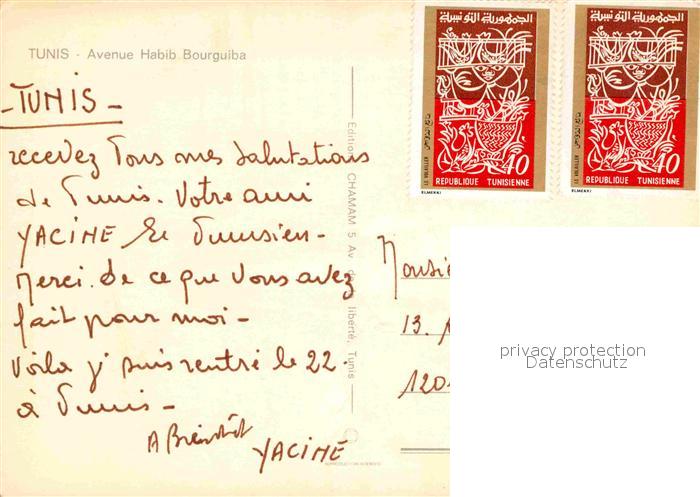 TUNIS - Avenue Habib Bourguiba
- TUNIS -
recevez Tous mes Salutations
de Tunis. Votre ami
YACINE le Tunisien -
Merci de ce que vous avez
fait pour moi -
Voila j' suis rentré le 22
à Tunis -
A Bientôt
YACINE
Edition CHAMAM 5 Av. de la liberté, Tunis
الجمهورية التونسية
LE VOLAILLER
40
REPUBLIQUE TUNISIENNE
ELMEKKI
الجمهورية التونسية
LE VOLAILLER
40
REPUBLIQUE TUNISIENNE
ELMEKKI
Monsie
13.
120
privacy protection
Datenschutz